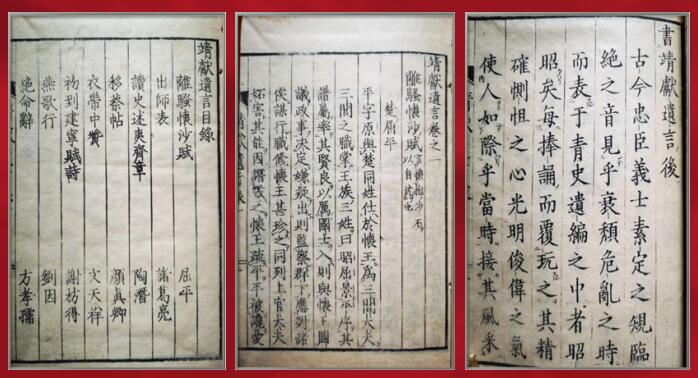 靖獻遺言目録
離騷懷沙賦 屈平
出師表 諸葛亮
讀史述夷齊章 陶潛
移蔡帖 顔眞卿
衣帶中贊 文天祥
初到建寧賦詩 謝枋得
燕歌行 劉因
絶命辭 方孝孺
靖獻遺言卷之一
離騷懷沙賦 言懷抱沙石以自沉也
楚屈平
平字原與楚同姓仕於懷王爲三閭大夫
三閭之職掌王族三姓曰昭屈景平序其
譜屬率其賢良以厲國士入則與懷王圖
議政事决定嫌疑出則監察群下應對諸
侯謀行職修懷王甚珍之同列上官大夫
妬害其能因譖毀之懷王疏平平被讒憂
書靖獻遺言後
古今忠臣義士素定之規臨
絶之音見乎衰頽危亂之時
而表于青史遺編之中者昭
昭矣每捧誦而覆玩之其精
確惻怛之心光明俊偉之氣
使人如際乎當時接其風采